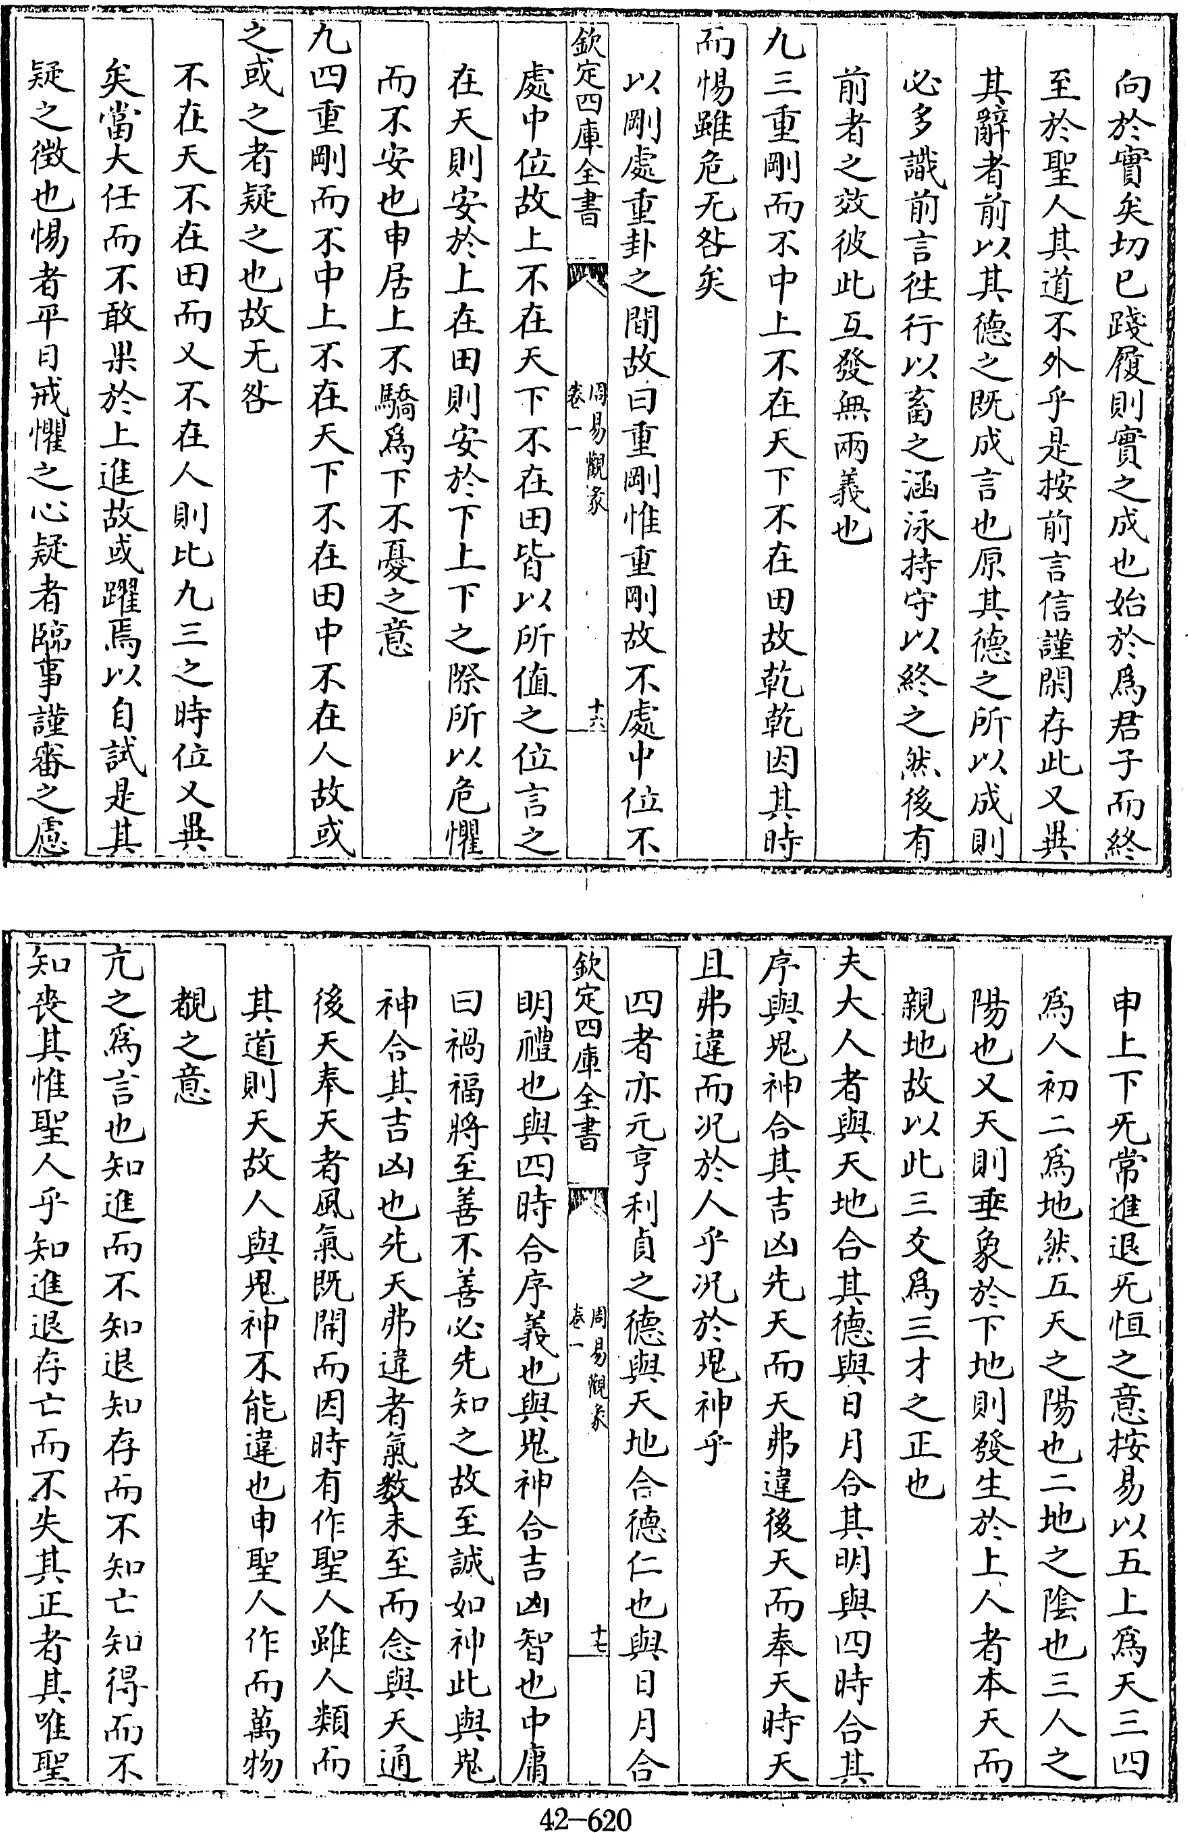 向於實矣切已踐履則實之成也始於爲君子而終
至於聖人其道不外乎是按前言信謹閑存此又異
其辭者前以其德之既成言也原其德之所以成則
必多識前言徃行以畜之涵泳持守以終之然後有
前者之效彼此互發無兩義也
九三重剛而不中上不在天下不在田故乾乾因其時
而惕雖危无咎矣
以剛處重卦之間故曰重剛惟重剛故不處中位不
欽定四庫全書
周易觀彖
卷一
十六
處中位故上不在天下不在田皆以所值之位言之
在天則安於上在田則安於下上下之際所以危懼
而不安也申居上不驕爲下不憂之意
九四重剛而不中上不在天下不在田中不在人故或
之或之者疑之也故无咎
不在天不在田而又不在人則比九三之時位又異
矣當大任而不敢果於上進故或躍焉以自試是其
疑之徴也惕者平日戒懼之心疑者臨事謹審之慮
申上下无常進退无恒之意按易以五上爲天三四
爲人初二爲地然五天之陽也二地之陰也三人之
陽也又天則垂象於下地則發生於上人者本天而
親地故以此三爻爲三才之正也
夫大人者與天地合其德與日月合其明與四時合其
序與鬼神合其吉凶先天而天弗違後天而奉天時天
且弗違而况於人乎况於鬼神乎
四者亦元亨利貞之德與天地合德仁也與日月合
欽定四庫全書
周易觀彖
卷一
十七
明禮也與四時合序義也與鬼神合吉凶智也中庸
曰禍福將至善不善必先知之故至誠如神此與鬼
神合其吉凶也先天弗違者氣數未至而念與天通
後天奉天者風氣既開而因時有作聖人雖人類而
其道則天故人與鬼神不能違也申聖人作而萬物
覩之意
亢之爲言也知進而不知退知存而不知亡知得而不
知喪其惟聖人乎知進退存亡而不失其正者其唯聖
42-620